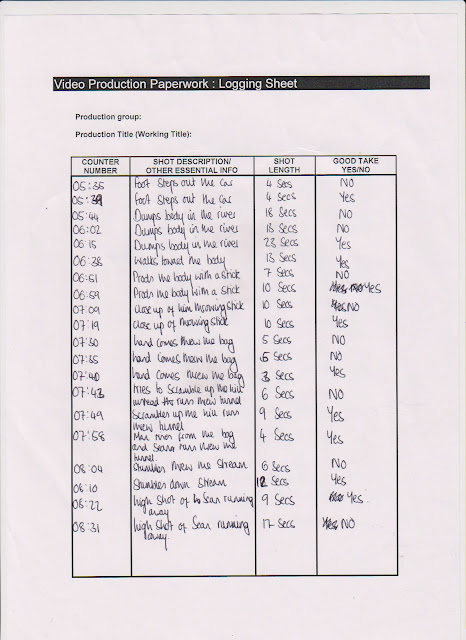 Video Production Paperwork : Logging Sheet
Production group:
Production Title (Working Title):
COUNTER NUMBER SHOT DESCRIPTION/ OTHER ESSENTIAL INFO SHOT LENGTH GOOD TAKE YES/NO
05:35 foot Steps out the car 4 Secs NO
05:39 foot Steps out the car 4 Secs Yes
05:44 Dumps body in the river 18 Secs NO
06:02 Dumps body in the river 13 Secs NO
06:15 Dumps body in the river 23 Secs Yes
06:38 Walks toward the body 13 Secs Yes
06:51 Prods the body with a stick 7 Secs NO
06:59 Prods the body with a stick 10 Secs YES
07:09 close up of him throwing stick 10 Secs NO
07:19 close up of throwing stick 10 Secs Yes
07:30 hand comes threw the bag 5 Secs NO
07:35 hand comes threw the bag 5 Secs NO
07:40 hand comes threw the bag 3 Secs Yes
07:43 tries to Scramble up the hill 6 Secs NO
the runs threw tunnel
07:49 Scrambles up the hill runs 9 Secs Yes
threw tunnel
07:58 Man from the bag 4 Secs Yes
and Sean runs threw the
tunnel
08:04 Stumbles threw the Stream 6 Secs NO
08:10 Stumbles down Stream 12 Secs Yes
08:22 high Shot of Sean running 9 Secs Yes
away
08:31 high Shot of Sean running 17 Secs NO
away.